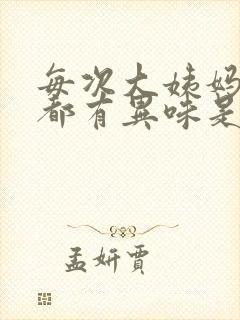 每次大姨妈
都有异味是
孟妍贾